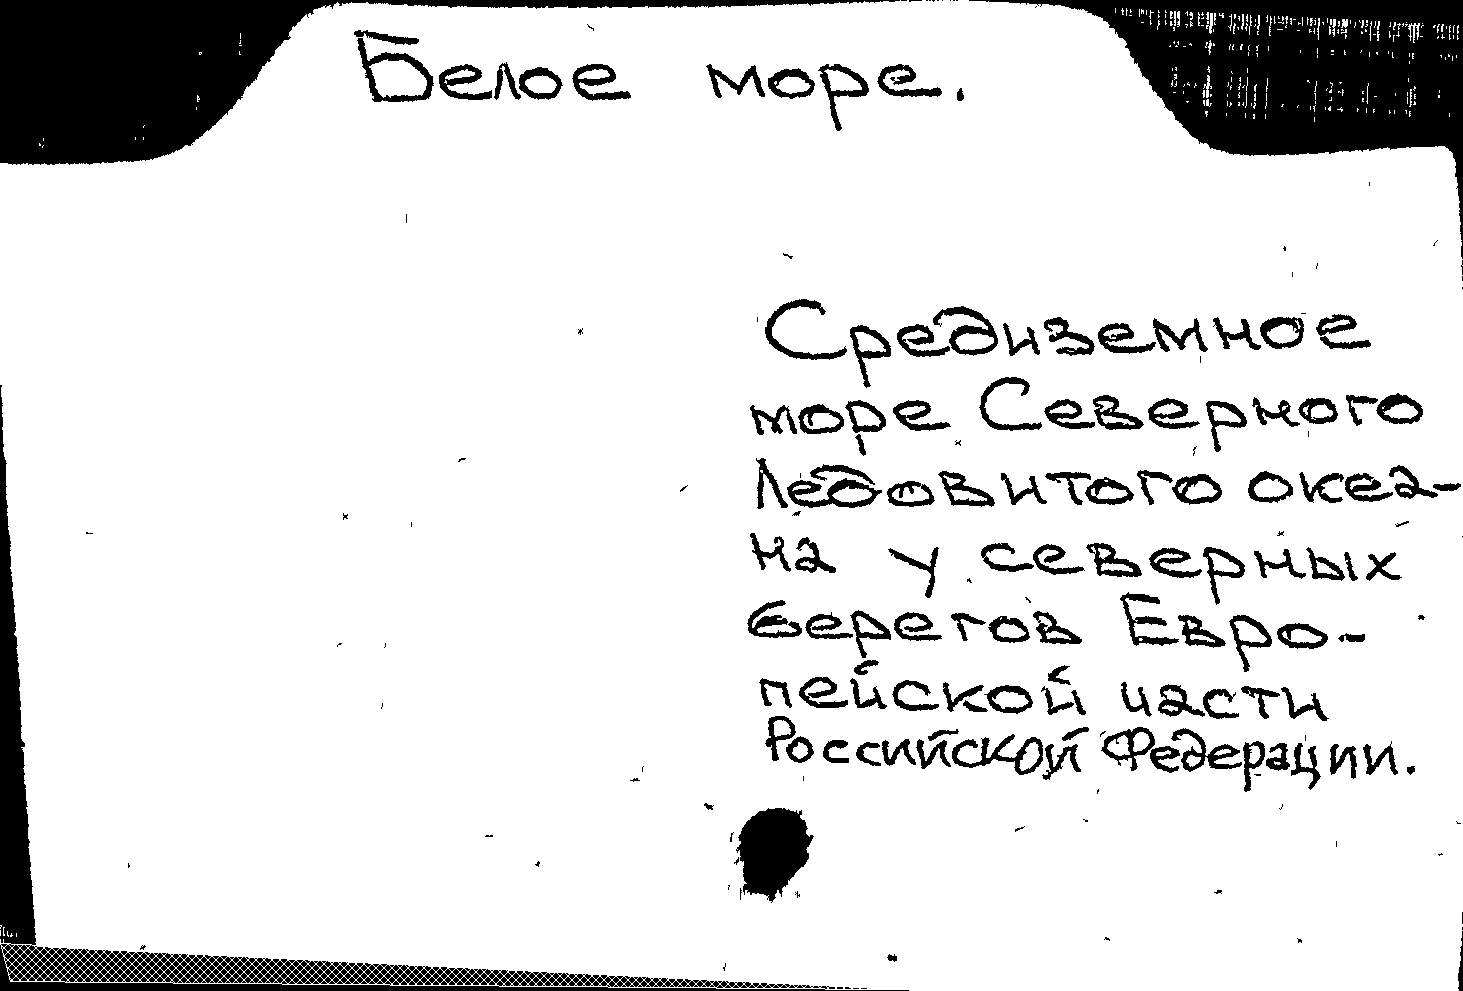 Белое море.
Средиземное
море Северного
Ледовитого океа-
на у северных
берегов Евро-
пейской части
Российской Федерации.